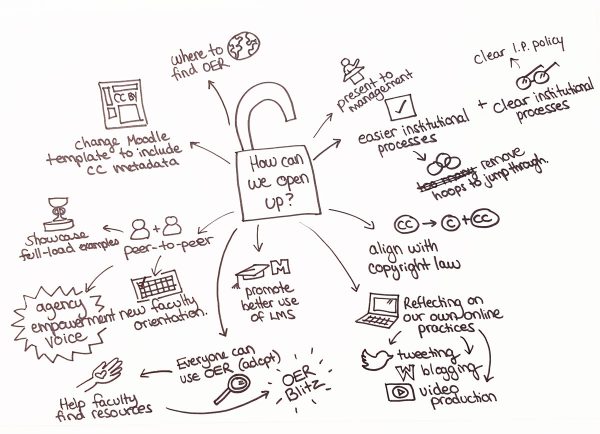 where to
find OER
CC BY
change Moodle
template to include
CC metadata
How can
we open
up?
present to
management
easier institutional
processes
+
clear I.P. policy
clear institutional
processes
too many remove
hoops to jump through.
CC → C + CC
align with
copyright law
Showcase
full-load examples
+
peer-to-peer
agency
empowerment
voice
new faculty
orientation.
M
promote
better use
of LMS
Reflecting on
our own online
practices
tweeting
W blogging
video
production
Everyone can
use OER (adopt)
Help faculty
find resources
OER
Blitz